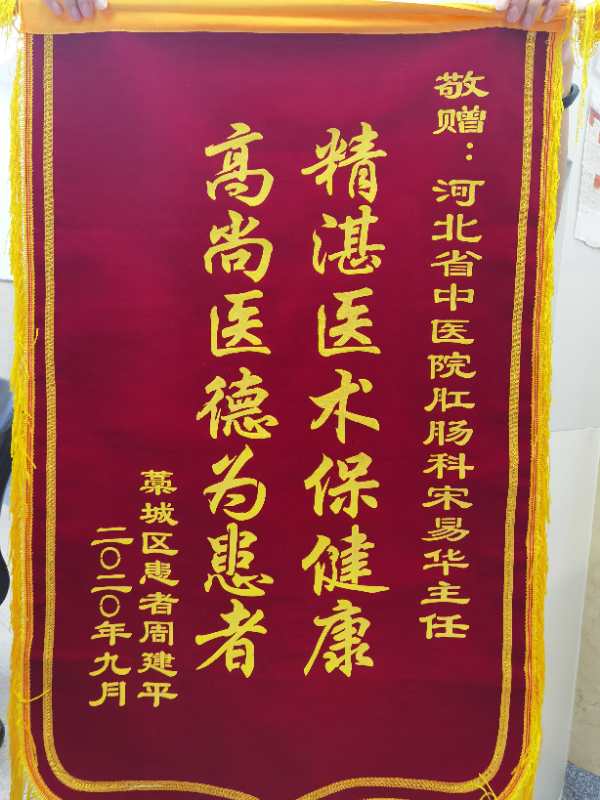 敬赠：河北省中医院肛肠科宋易华主任
精湛医术保健康
高尚医德为患者
藁城区患者周建平
二〇二〇年九月